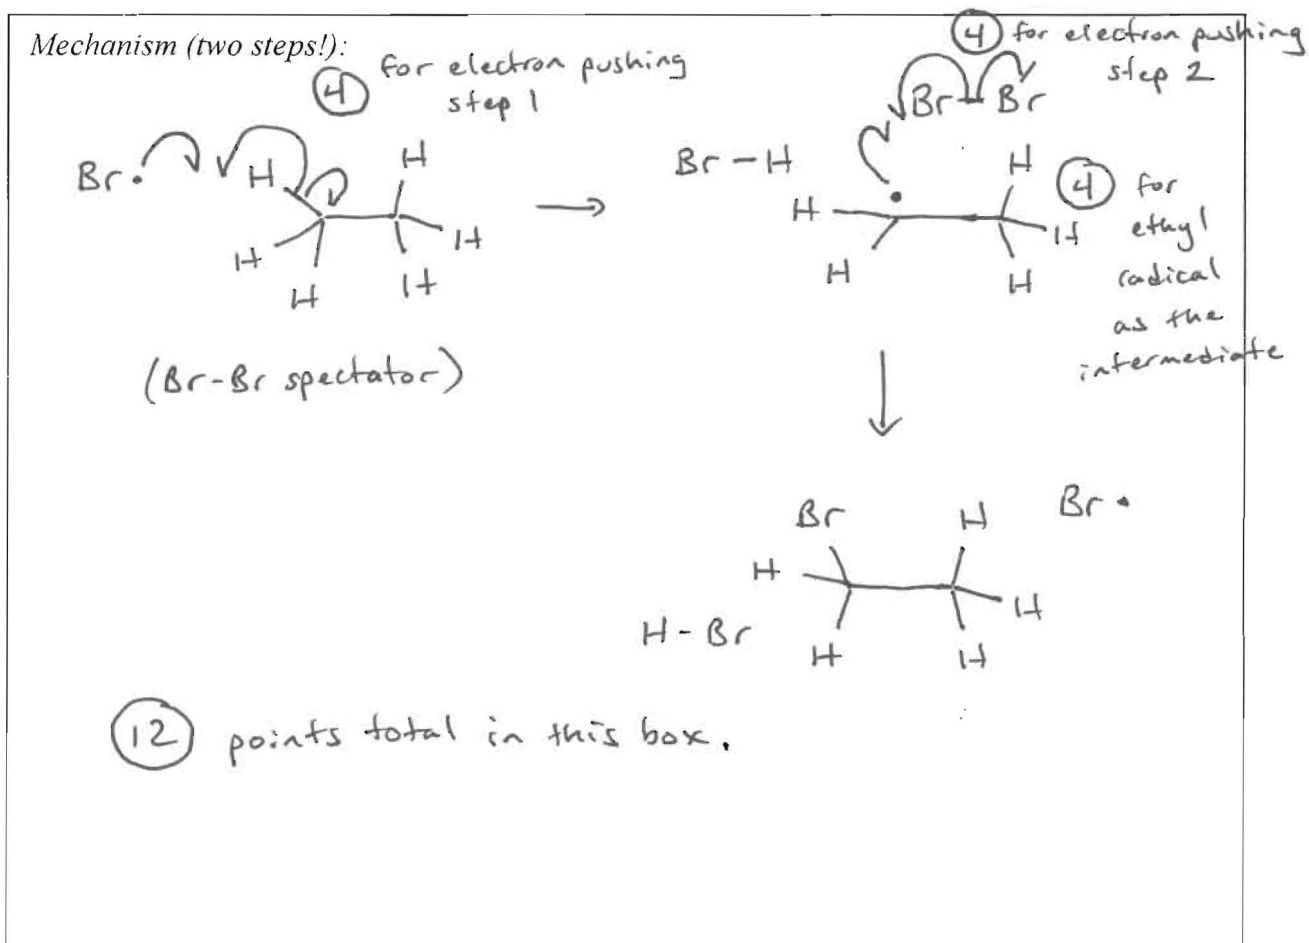 Mechanism (two steps!):
4 for electron pushing
step 1
4 for electron pushing
step 2
Br - Br
Br · H H
H H
H H
Br - H
H H
H H
H
4 for
ethyl
radical
as the
intermediate
(Br-Br spectator)
Br H Br ·
H H
H - Br
H H
12 points total in this box.